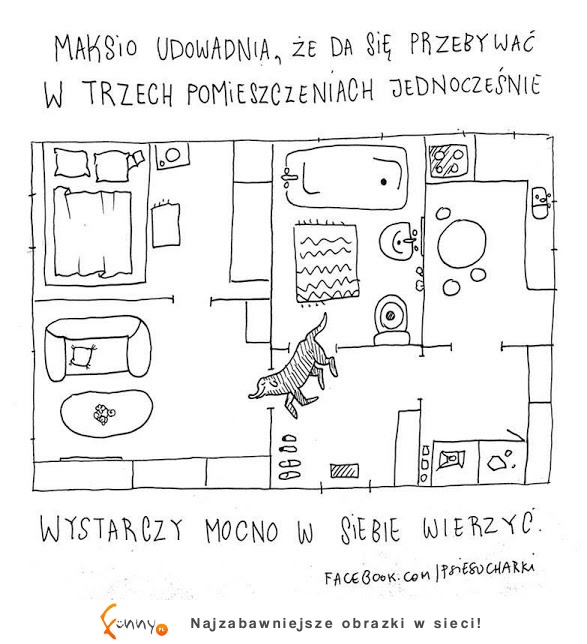 MAKSIO UDOWADNIA, ŻE DA SIĘ PRZEBYWAĆ
W TRZECH POMIESZCZENIACH JEDNOCZEŚNIE
WYSTARCZY MOCNO W SIEBIE WIERZYĆ.
FACEBOOK.COM/PSIESUCHARKI
funny.PL Najzabawniejsze obrazki w sieci!